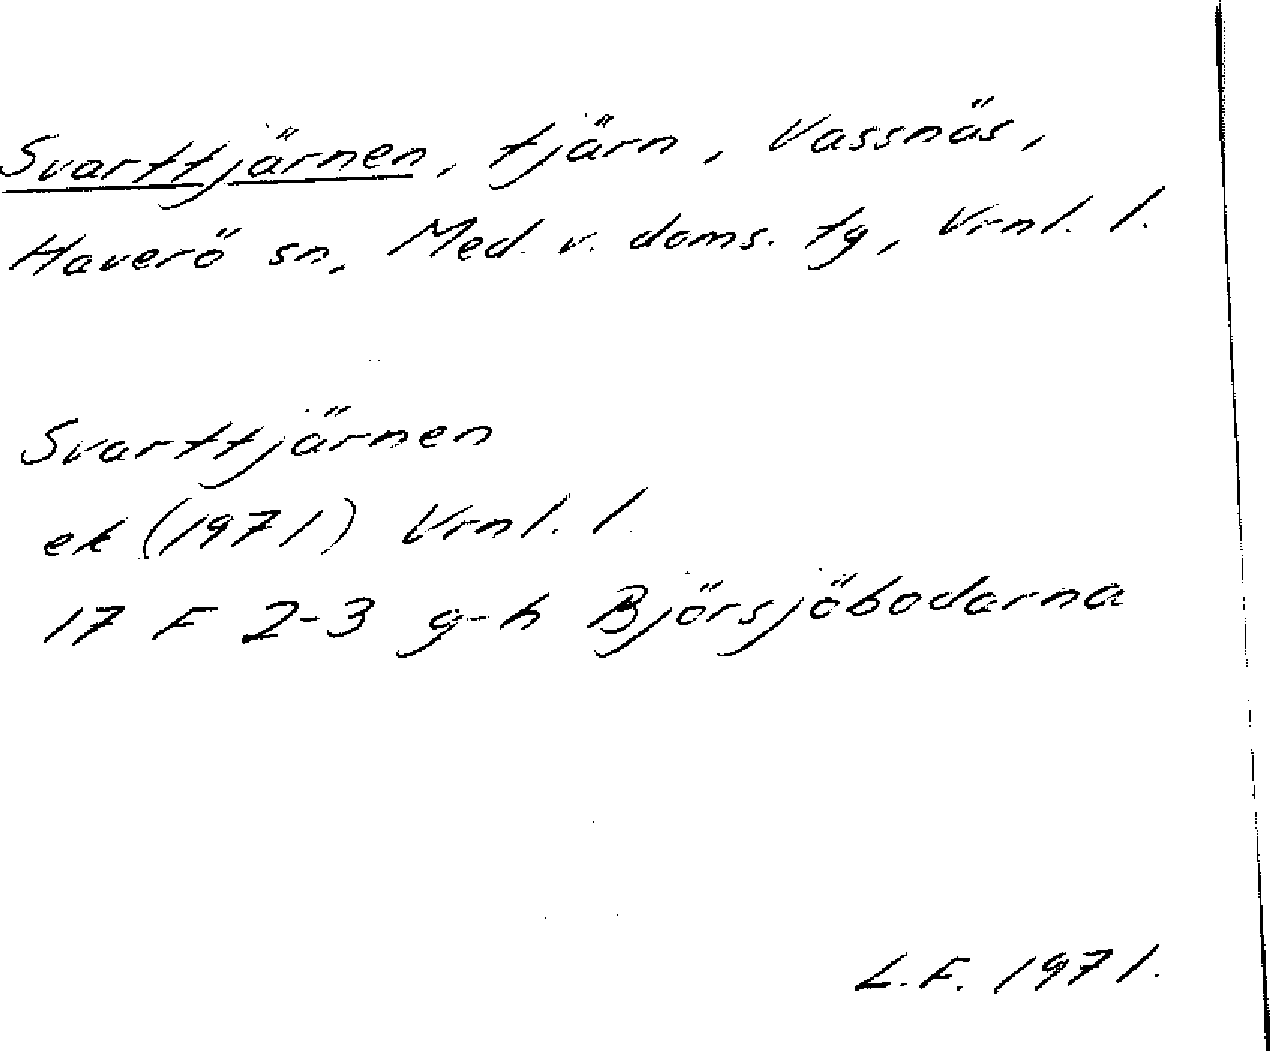 Svarttjärnen, tjärn, Vassnäs,
Haverö sn, Med. v. doms. tg, Vrnl. l.
Svarttjärnen
ek (1971) Vrnl. l.
17 F 2-3 g-h Björsjöbodarna
L.F. 1971.